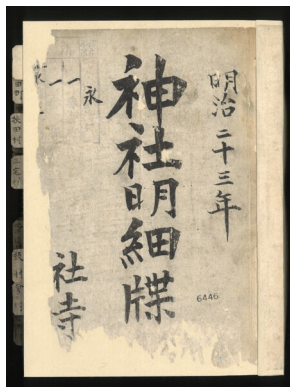 明治二十三年
神社明細牒
永
社寺
6446